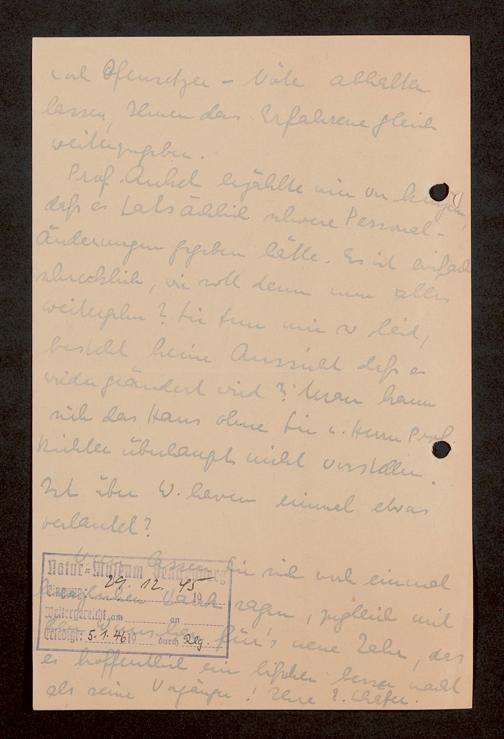 und Ofensetzer - Nöte abhalten
lassen, Ihnen das Erfahrene gleich
weiterzugeben.
Prof. Ankel erzählte mir vor kurzem,
daß es tatsächlich schwere Personal-
Änderungen gegeben hätte. Es ist einfach
schrecklich, wie soll denn nun alles
weitergehn? Sie tun mir so leid,
besteht keine Aussicht daß es
wieder geändert wird? Man kann
sich das Haus ohne Sie u. Herrn Prof.
Richter überhaupt nicht vorstellen.
Ist über W.haven einmal etwas
verlautet?
lassen Sie sich noch einmal
Dank sagen, zugleich mit
für's neue Jahr, das
es hoffentlich ein bißchen besser macht
als seine Vorgänger! Ihre E. Schäfer.
Natur-Museum Senckenberg
Eingang: 29. 12. 1945
Weitergereicht am an
Erledigt: 5.1.46 19 durch